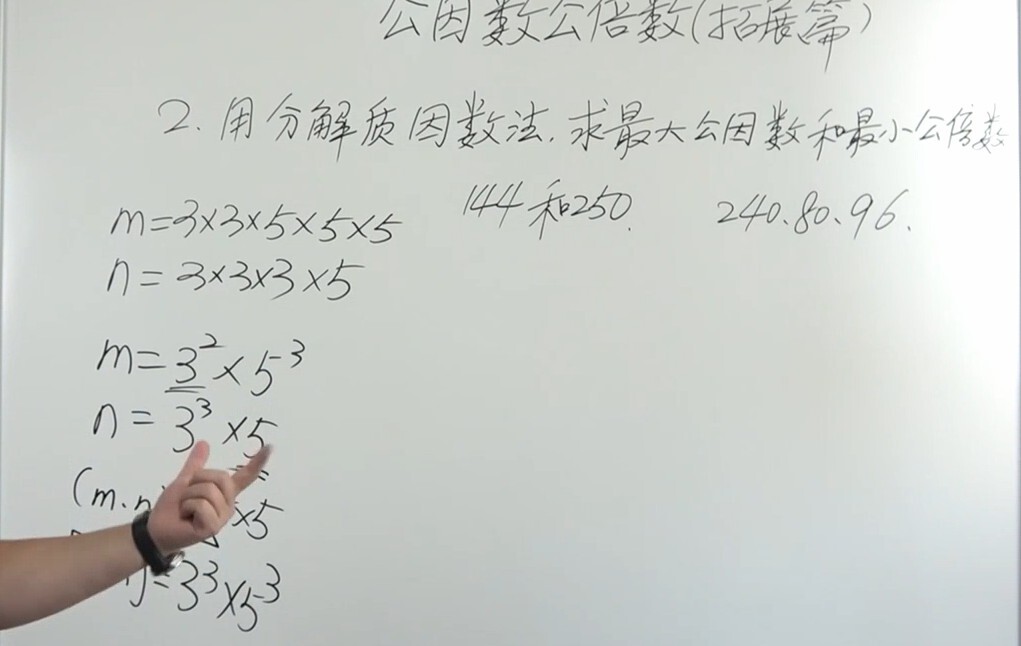 公因数公倍数(拓展篇)
2. 用分解质因数法.求最大公因数和最小公倍数
m=3×3×5×5×5
n=3×3×3×5
144和250.
240.80.96.
m=3²×5³
n=3³×5
(m.n ×5
=3³×5³